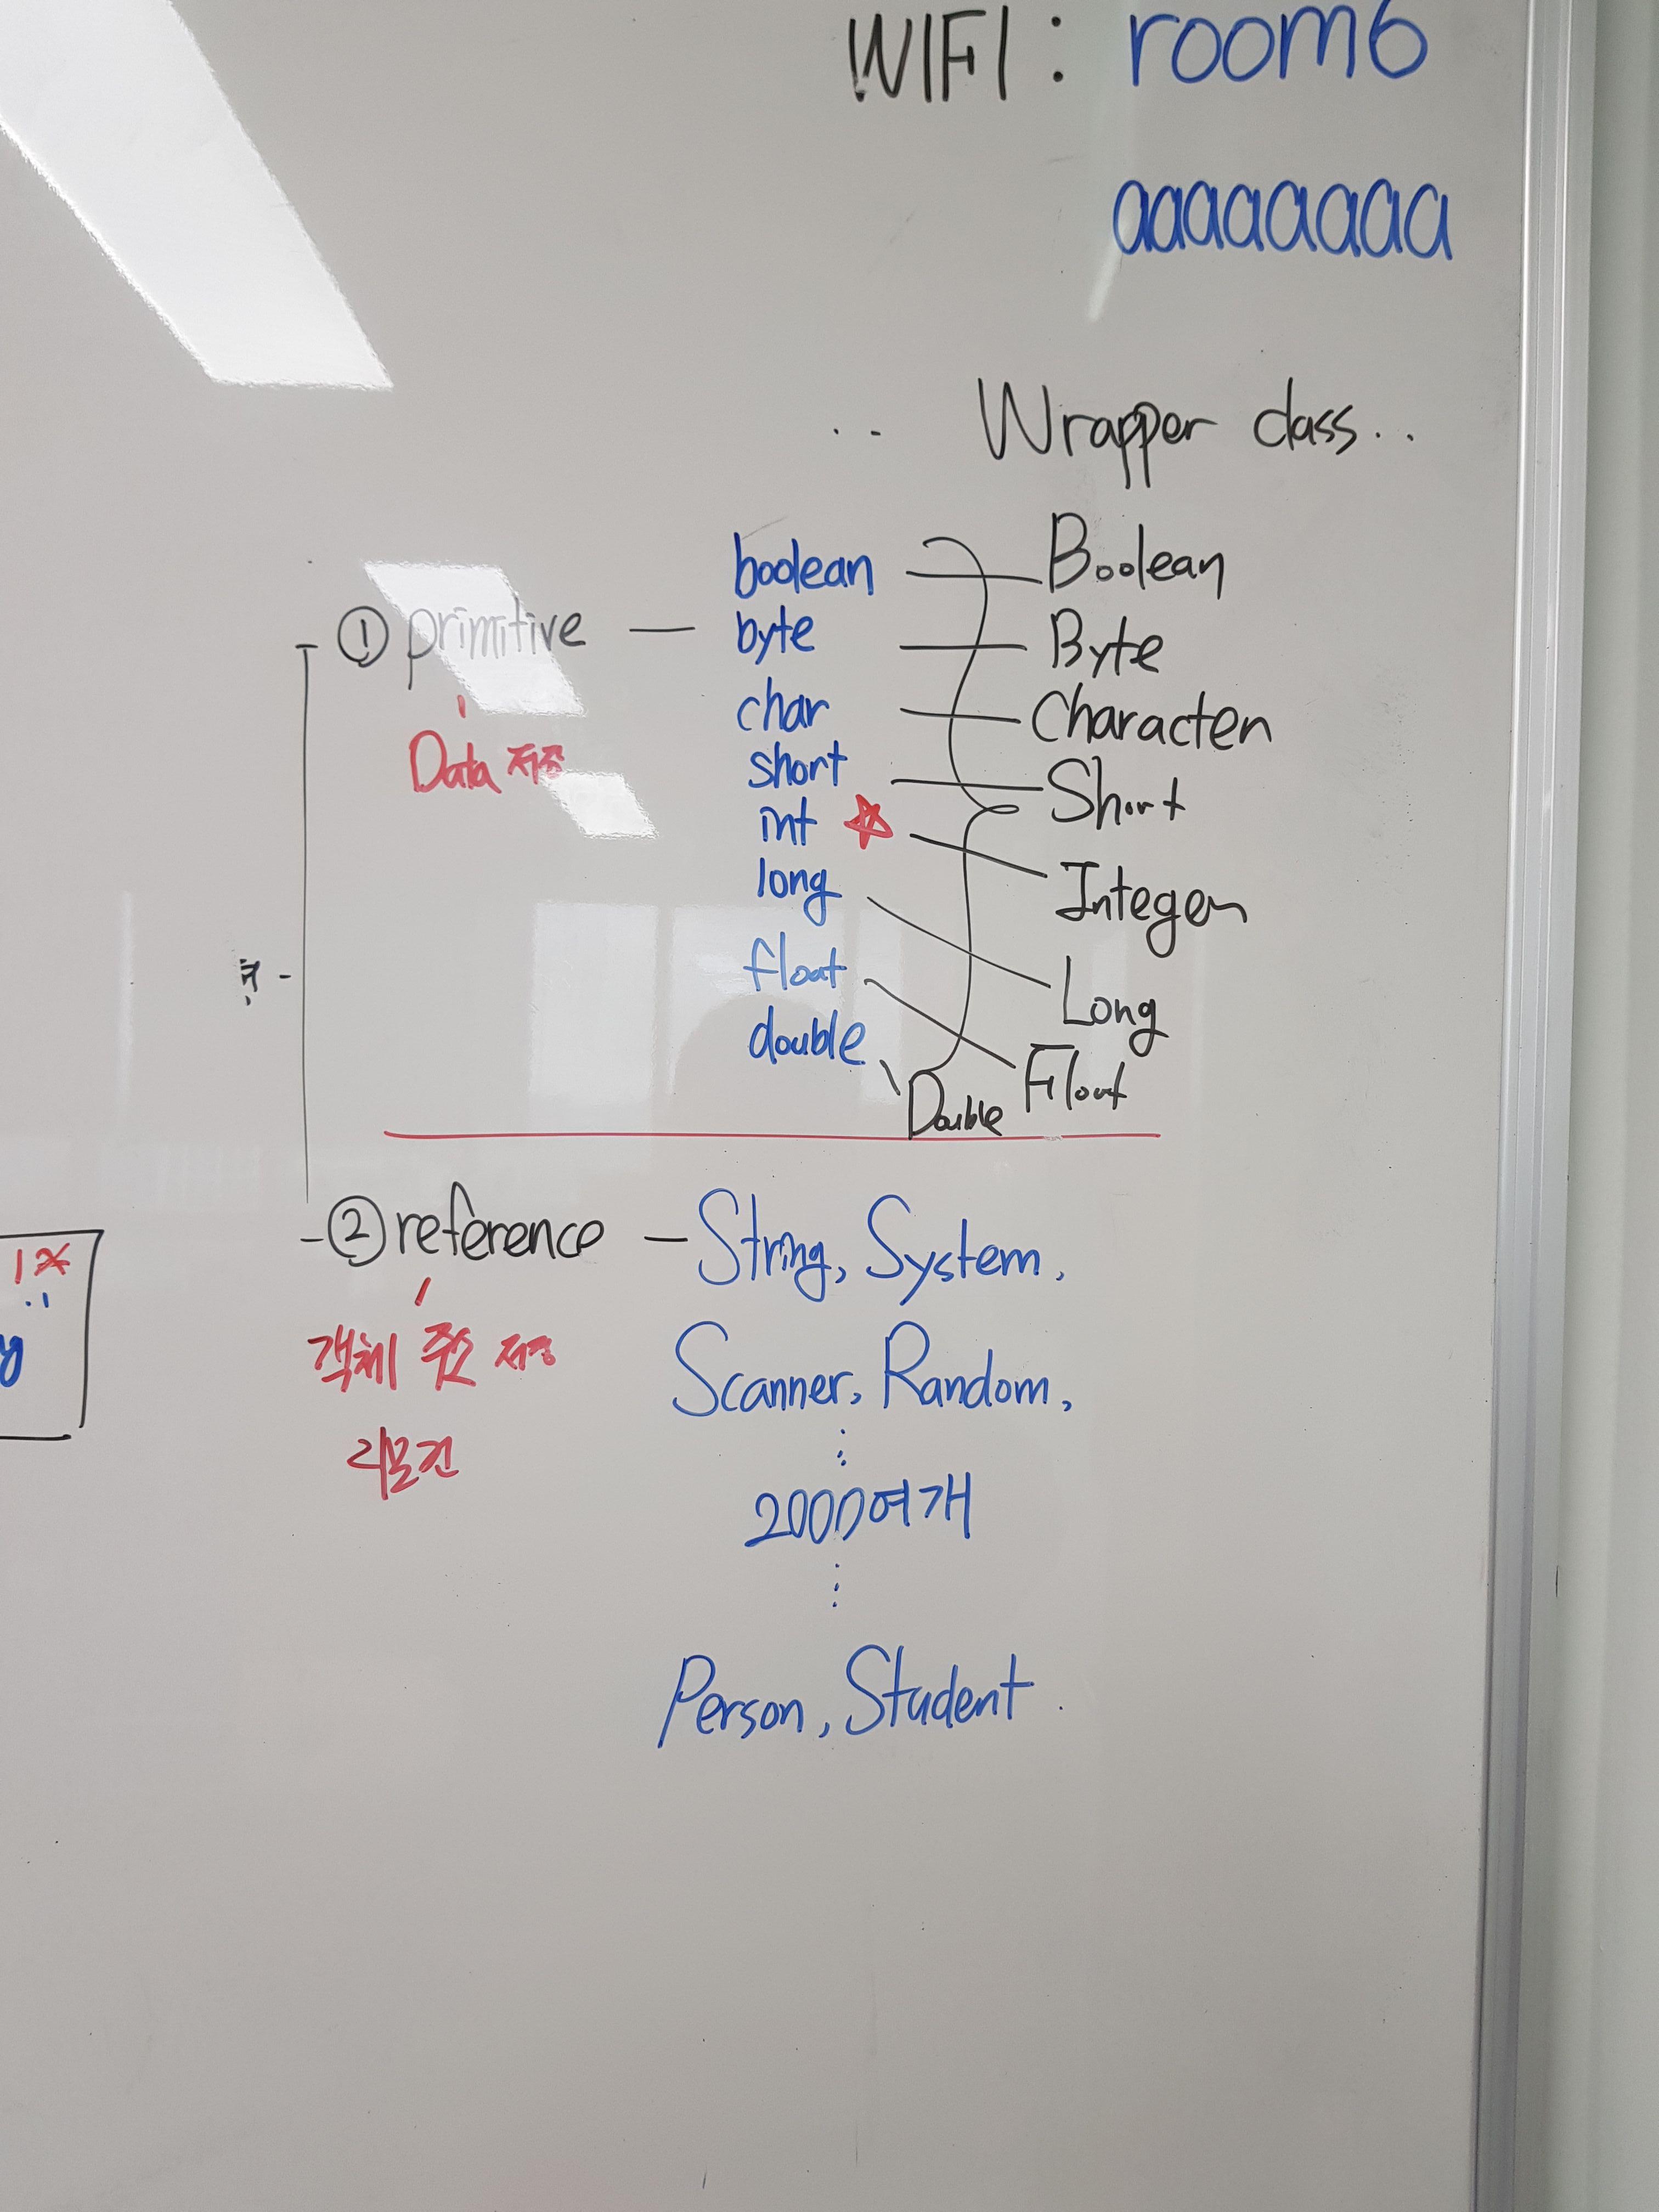 WIFI : room6
aaaaaaaa
.. Wrapper class..
① primitive — boolean Boolean
byte Byte
char Character
short Short
int Integer
long Long
float Float
double Double
Data 저장
② reference — String, System,
Scanner, Random,
⋮
2000여개
⋮
Person, Student.
객체 주소 저장
리모컨